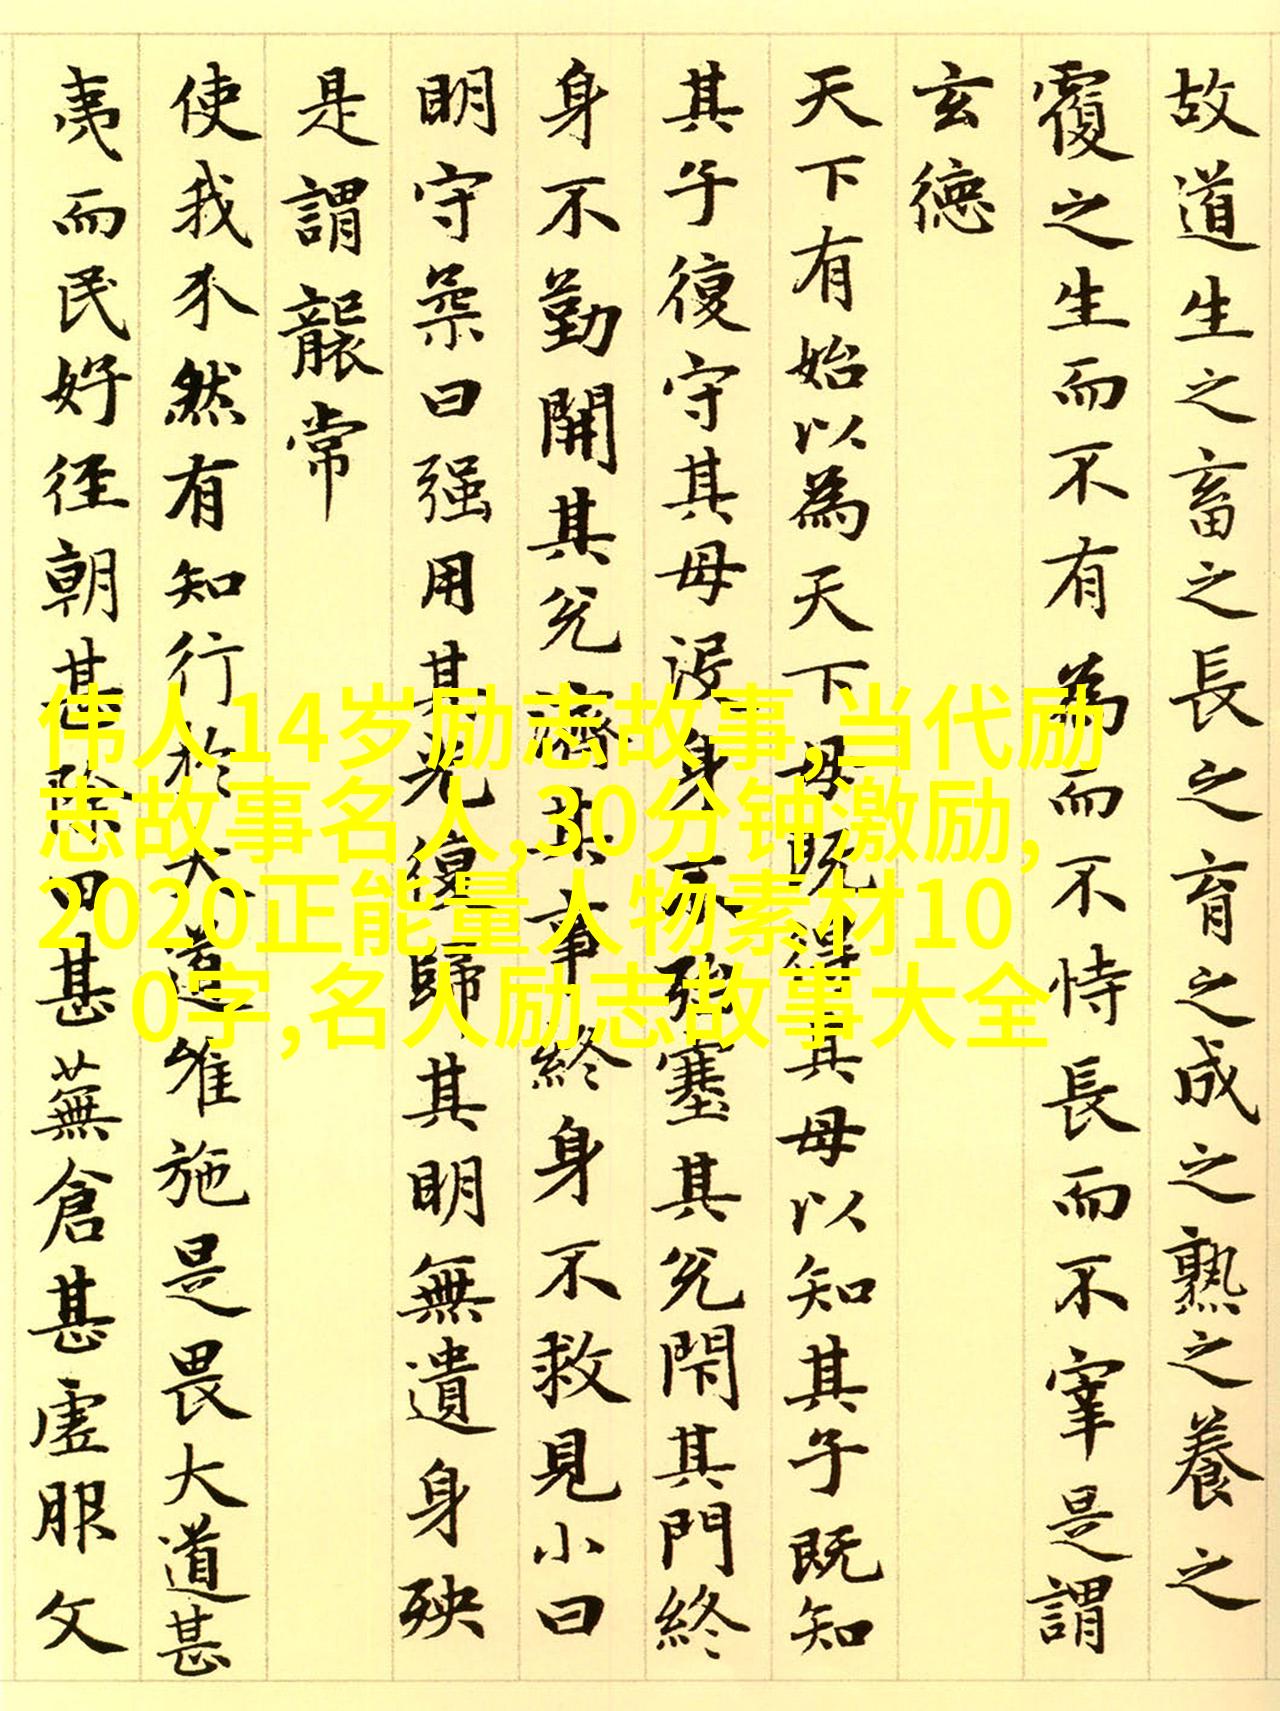 故道生之畜之長之育之成之熟之養之
覆之生而不有為而不恃長而不宰是謂
玄德
天下有始以為天下母既得其母以知其子既知
其子復守其母没身不塞其兊閇其門終
身不勤開其兊濟其事終身不救見小曰
明守柔曰强用其光復歸其明無遺身殃
是謂襲常
使我介然有知行於大道唯施是畏大道甚
夷而民好徑朝甚除田甚蕪倉甚虛服文
伟人14岁励志故事,当代励
志故事名人,30分钟激励,
2020正能量人物素材10
0字,名人励志故事大全